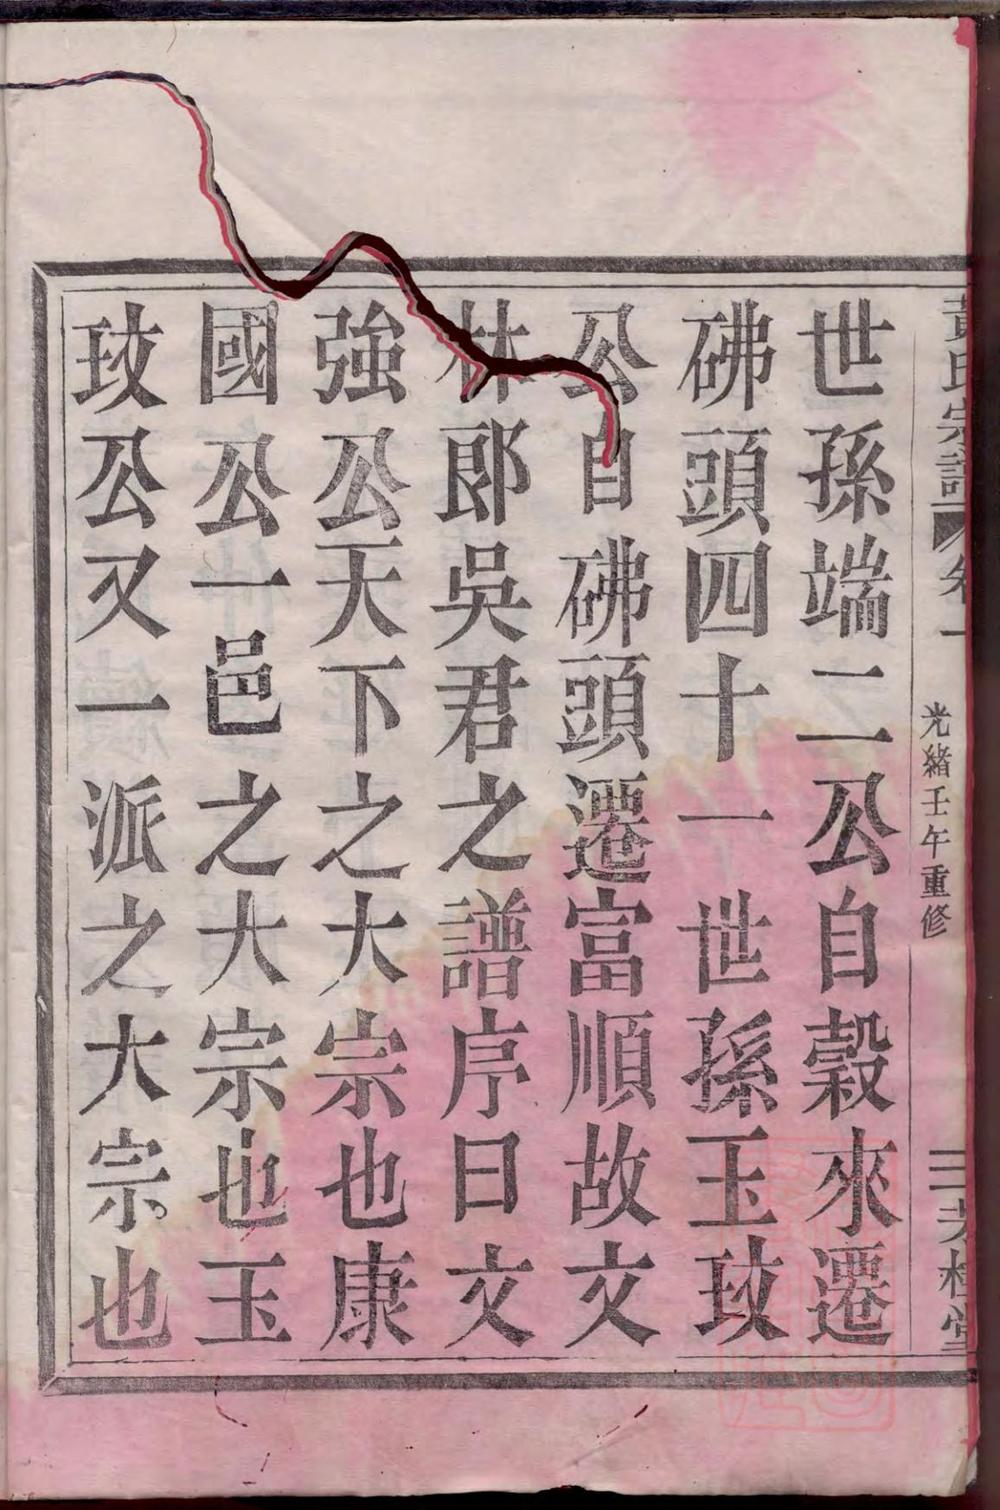 黃氏宗譜 卷一 光緒壬午重修 三 桂堂
世孫端二公自穀來遷
砩頭四十一世孫玉玫
公自砩頭遷富順故文
林郎吳君之譜序曰文
強公天下之大宗也康
國公一邑之大宗也玉
玫公又一派之大宗也